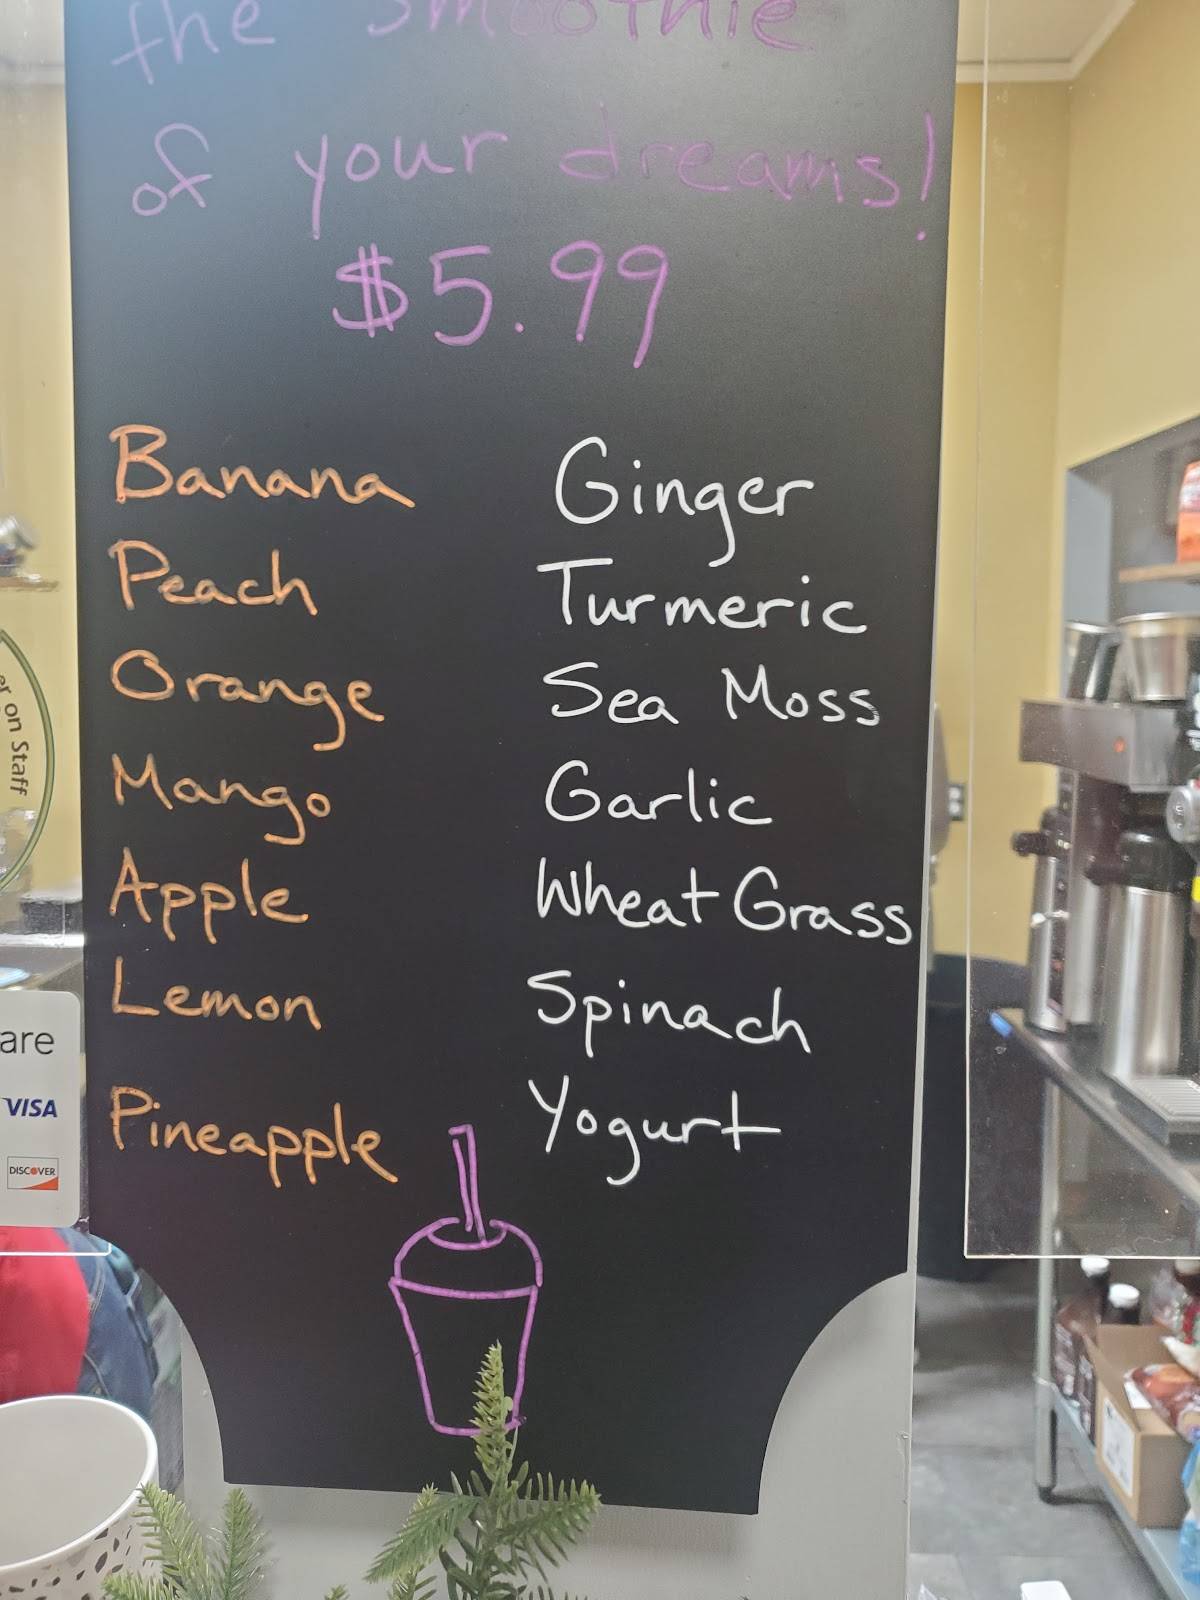 the smoothie
of your dreams!
$5.99
Banana
Peach
Orange
Mango
Apple
Lemon
Pineapple
Ginger
Turmeric
Sea Moss
Garlic
Wheat Grass
Spinach
Yogurt
er on Staff
are
VISA
DISCOVER